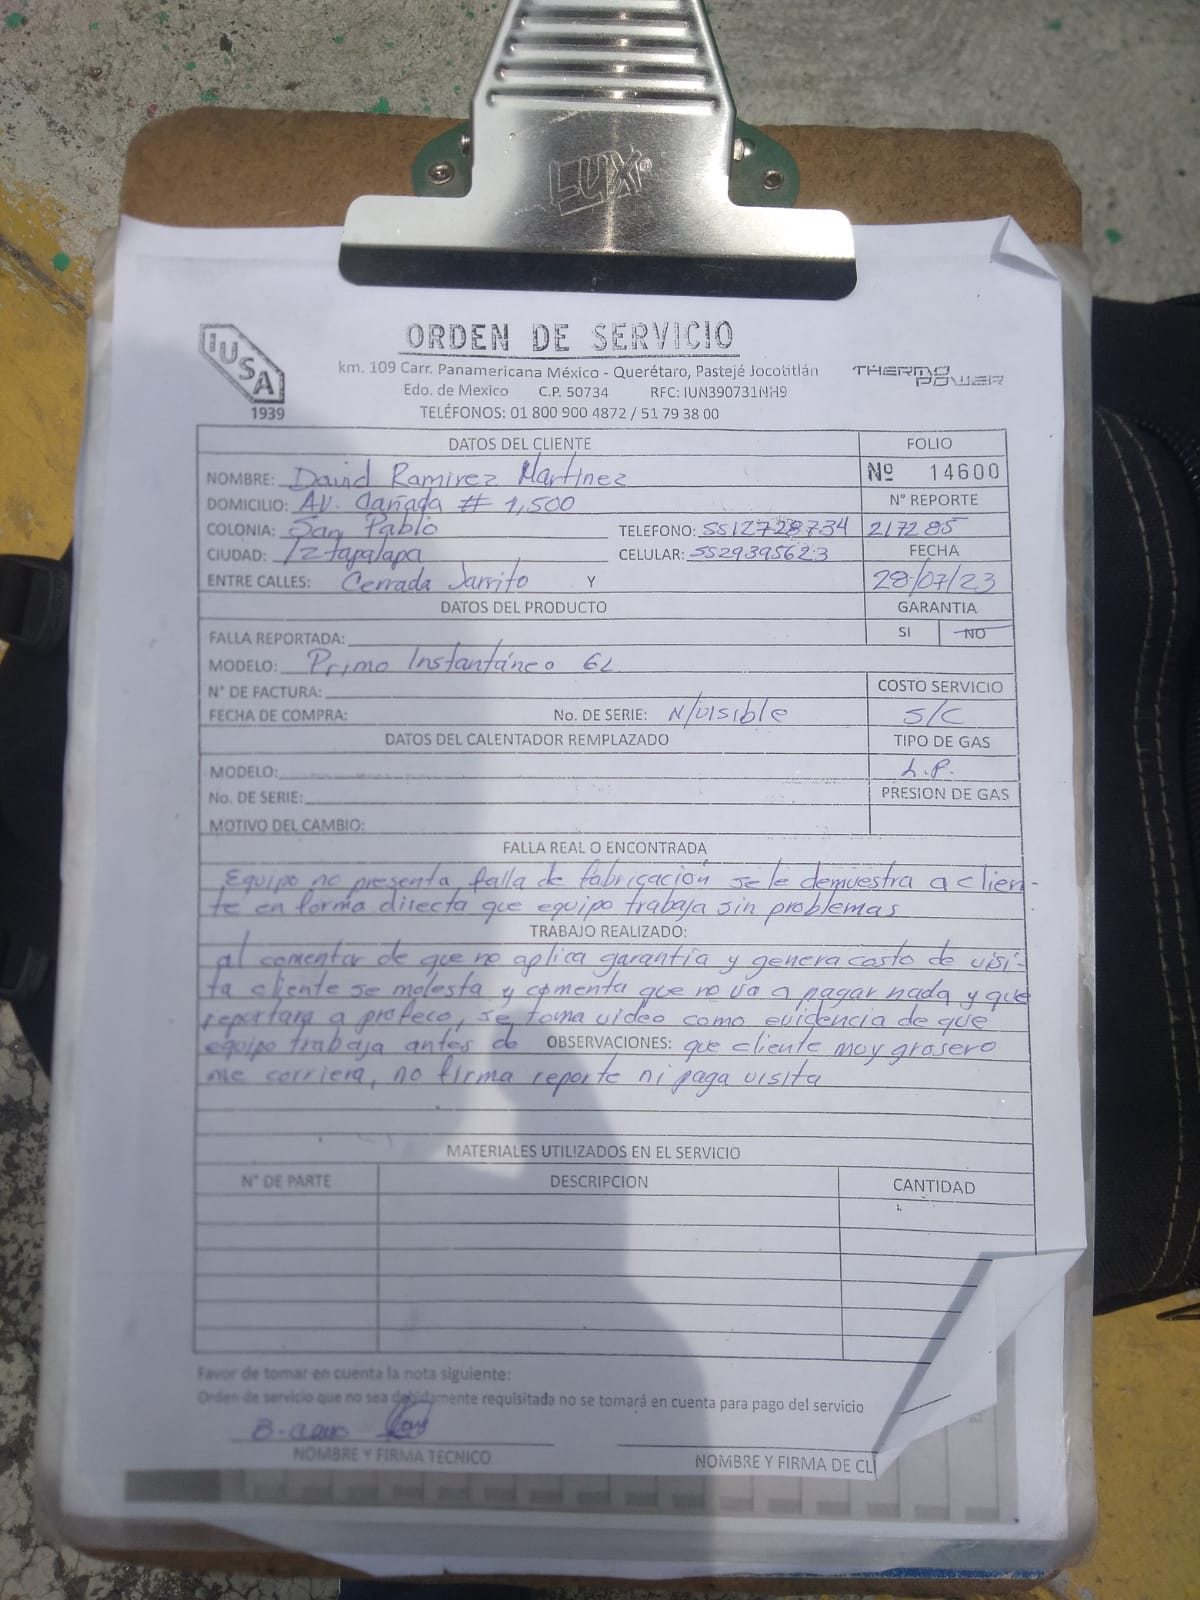 LUX
ORDEN DE SERVICIO
IUSA
1939
km. 109 Carr. Panamericana México - Querétaro, Pastejé Jocotitlán
THERMO POWER
Edo. de Mexico C.P. 50734 RFC: IUN390731NH9
TELÉFONOS: 01 800 900 4872 / 51 79 38 00
DATOS DEL CLIENTE FOLIO
NOMBRE: David Ramirez Martinez Nº 14600
DOMICILIO: Av. Cañada # 1,500 N° REPORTE
COLONIA: San Pablo TELEFONO: 5512728734 217285
CIUDAD: Iztapalapa CELULAR: 5529395623 FECHA
ENTRE CALLES: Cerrada Jarrito Y 28/07/23
DATOS DEL PRODUCTO GARANTIA
FALLA REPORTADA: SI NO
MODELO: Primo Instantáneo 6L
N° DE FACTURA: COSTO SERVICIO
FECHA DE COMPRA: No. DE SERIE: N/visible S/C
DATOS DEL CALENTADOR REMPLAZADO TIPO DE GAS
MODELO: L.P.
No. DE SERIE: PRESION DE GAS
MOTIVO DEL CAMBIO:
FALLA REAL O ENCONTRADA
Equipo no presenta falla de fabricación se le demuestra a clien-
te en forma directa que equipo trabaja sin problemas
TRABAJO REALIZADO:
al comentar de que no aplica garantía y genera costo de visi-
ta cliente se molesta y comenta que no va a pagar nada y que
reportara a profeco, se toma video como evidencia de que
equipo trabaja antes de OBSERVACIONES: que cliente muy grosero
me corriera, no firma reporte ni paga visita
MATERIALES UTILIZADOS EN EL SERVICIO
N° DE PARTE DESCRIPCION CANTIDAD
Favor de tomar en cuenta la nota siguiente:
Orden de servicio que no sea debidamente requisitada no se tomará en cuenta para pago del servicio
NOMBRE Y FIRMA TECNICO NOMBRE Y FIRMA DE CLI